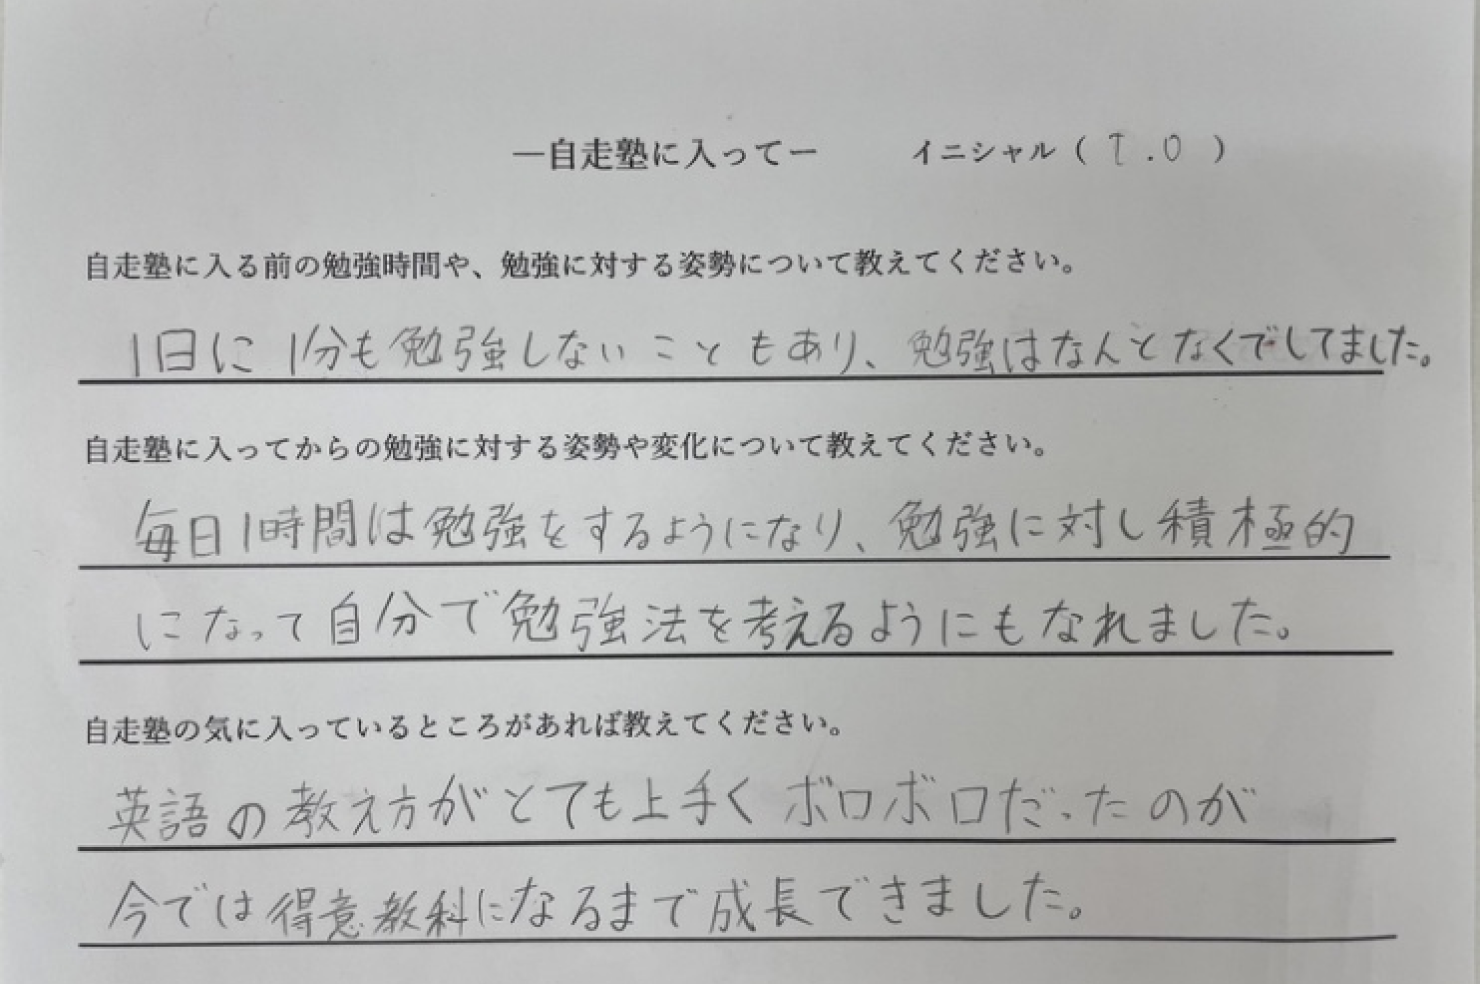 ―自走塾に入ってー　イニシャル（T.O）
自走塾に入る前の勉強時間や、勉強に対する姿勢について教えてください。
1日に1分も勉強しないこともあり、勉強はなんとなくでしてました。
自走塾に入ってからの勉強に対する姿勢や変化について教えてください。
毎日1時間は勉強をするようになり、勉強に対し積極的
になって自分で勉強法を考えるようにもなれました。
自走塾の気に入っているところがあれば教えてください。
英語の教え方がとても上手くボロボロだったのが
今では得意教科になるまで成長できました。